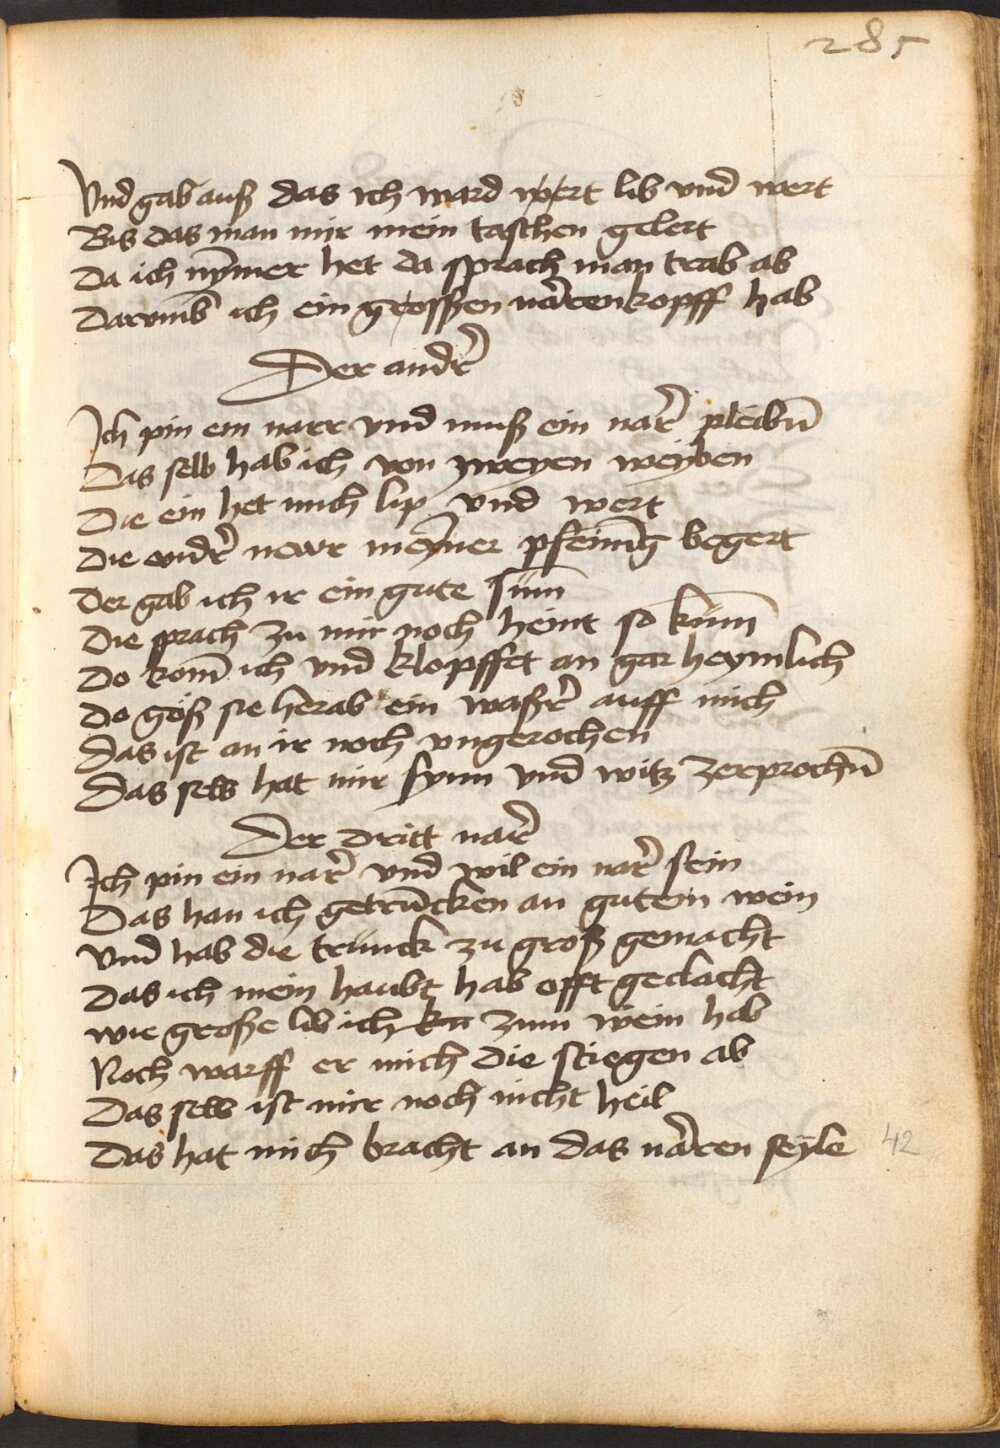 285
Vnd gab auß das ich ward wert lib vnd wert
Bis das man mir mein taschen gelert
Da ich nymer het da sprach man trab ab
Darvmb ich ein grossen narrenkopff hab
Der andr̄
Ich pin ein narr vnd muß ein nar̄ pleibn̄
Das selb hab ich von zweyen weyben
Die ein het mich lip vnd wert
Die andr̄ newr meyner pfening begert
Der gab ich ir ein gute sum̄
Die sprach zu mir noch heint so kum̄
Do kom̄ ich vnd klopffet an gar heymlich
Do goß sie herab ein waßr̄ auff mich
Das ist an ir noch vngerochen
Das selb hat mir synn vnd witz zerprochn̄
Der dritt nar̄
Ich pin ein nar̄ vnd wil ein nar̄ sein
Das han ich getrūcken an gutem wein
Vnd hab die trunck zu groß gemacht
Das ich mein haubt hab offt geclacht
wie große lib ich zum wein hab
Noch warff er mich die stiegen ab
Das selb ist mir noch nicht heil
Das hat mich bracht an das narren seyle
42